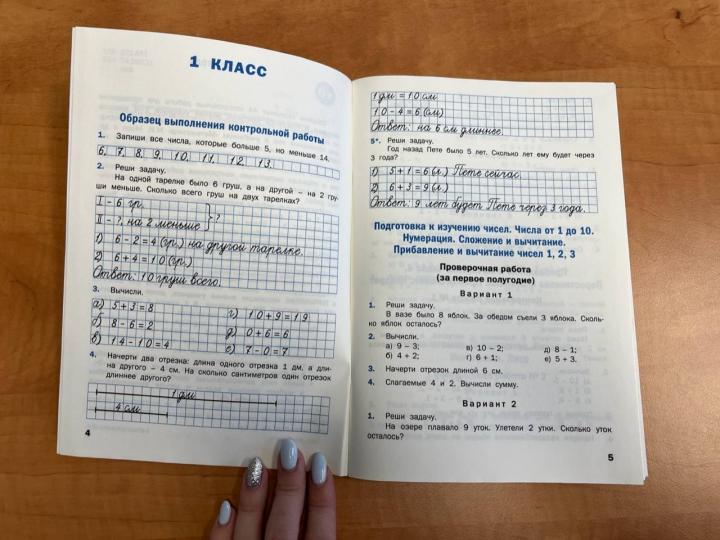 1 КЛАСС
Образец выполнения контрольной работы
1. Запиши все числа, которые больше 5, но меньше 14.
6, 7, 8, 9, 10, 11, 12, 13.
2. Реши задачу.
На одной тарелке было 6 груш, а на другой – на 2 гру-
ши меньше. Сколько всего груш на двух тарелках?
I – 6 гр.
?
II – ?, на 2 меньше
1) 6 – 2 = 4 (гр.) на другой тарелке.
2) 6 + 4 = 10 (гр.)
Ответ: 10 груш всего.
3. Вычисли.
а) 5 + 3 = 8 г) 10 + 9 = 19
б) 8 – 6 = 2 д) 0 + 6 = 6
в) 14 – 10 = 4 е) 7 – 0 = 7
4. Начерти два отрезка: длина одного отрезка 1 дм, а дли-
на другого – 4 см. На сколько сантиметров один отрезок
длиннее другого?
1 дм
4 см
4
1 дм = 10 см
10 – 4 = 6 (см)
Ответ: на 6 см длиннее.
5*. Реши задачу.
Год назад Пете было 5 лет. Сколько лет ему будет через
3 года?
1) 5 + 1 = 6 (л.) Пете сейчас.
2) 6 + 3 = 9 (л.)
Ответ: 9 лет будет Пете через 3 года.
Подготовка к изучению чисел. Числа от 1 до 10.
Нумерация. Сложение и вычитание.
Прибавление и вычитание чисел 1, 2, 3
Проверочная работа
(за первое полугодие)
Вариант 1
1. Реши задачу.
В вазе было 8 яблок. За обедом съели 3 яблока. Сколь-
ко яблок осталось?
2. Вычисли.
а) 9 – 3; в) 10 – 2; д) 8 – 1;
б) 4 + 2; г) 6 + 1; е) 5 + 3.
3. Начерти отрезок длиной 6 см.
4. Слагаемые 4 и 2. Вычисли сумму.
Вариант 2
1. Реши задачу.
На озере плавало 9 уток. Улетели 2 утки. Сколько уток
осталось?
5